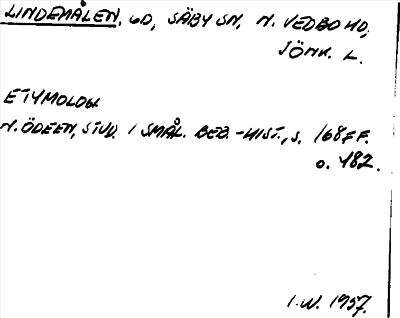 LINDEMÅLEN, GD, SÄBY SN, N. VEDBO HD,
JÖNK. L.
ETYMOLOGI
N. ÖDEEN, STUD. I SMÅL. BEB.-HIST., S. 168 FF.
O. 482.
I.W. 1957.